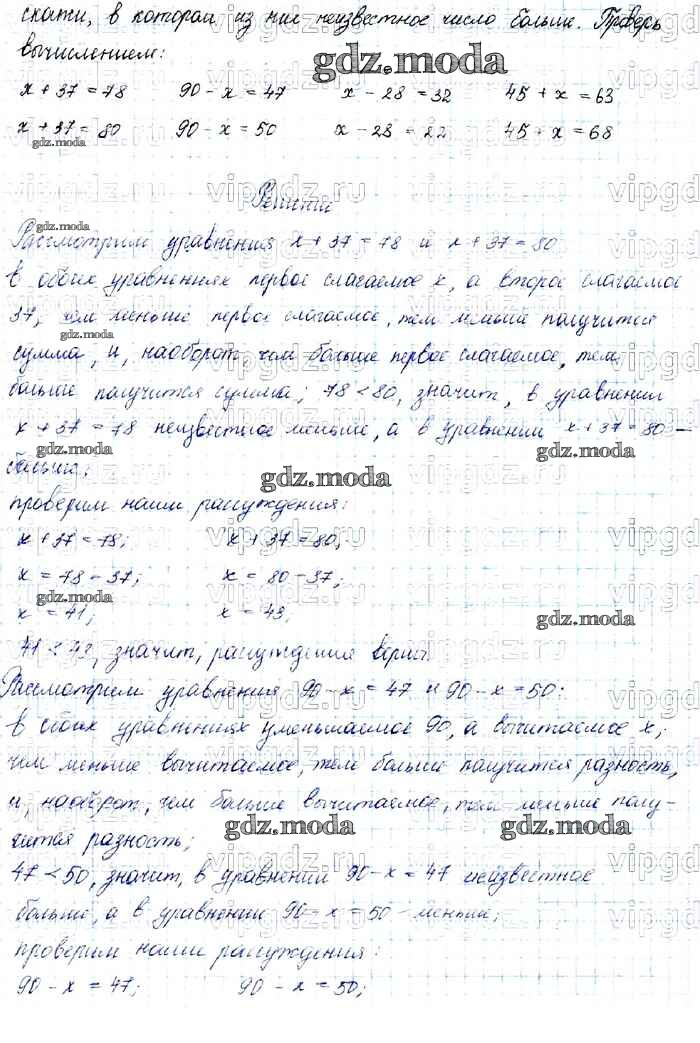 скати, в котором из них неизвестное число больше. Проверь
вычислением:
gdz.moda
x + 37 = 78   90 - x = 47   x - 28 = 32   45 + x = 63
x + 37 = 80   90 - x = 50   x - 28 = 22   45 + x = 68
gdz.moda
gdz.moda
Рассмотрим уравнения x + 37 = 78 и x + 37 = 80
в обоих уравнениях первое слагаемое x, а второе слагаемое
37; чем меньше первое слагаемое, тем меньше получится
gdz.moda
сумма, и, наоборот, чем больше первое слагаемое, тем
больше получится сумма; 78 < 80, значит, в уравнении
x + 37 = 78 неизвестное меньше, а в уравнении x + 37 = 80 -
больше;
gdz.moda
проверим наши рассуждения:
x + 37 = 78;   x + 37 = 80;
x = 78 - 37;   x = 80 - 37;
gdz.moda
x = 41;   x = 43;
gdz.moda
41 < 43, значит, рассуждения верны.
Рассмотрим уравнения 90 - x = 47 и 90 - x = 50:
в обоих уравнениях уменьшаемое 90, а вычитаемое x;
чем меньше вычитаемое, тем больше получится разность,
и, наоборот, чем больше вычитаемое, тем меньше полу-
чится разность;
gdz.moda
gdz.moda
47 < 50, значит, в уравнении 90 - x = 47 неизвестное
больше, а в уравнении 90 - x = 50 - меньше;
проверим наши рассуждения:
90 - x = 47;   90 - x = 50;